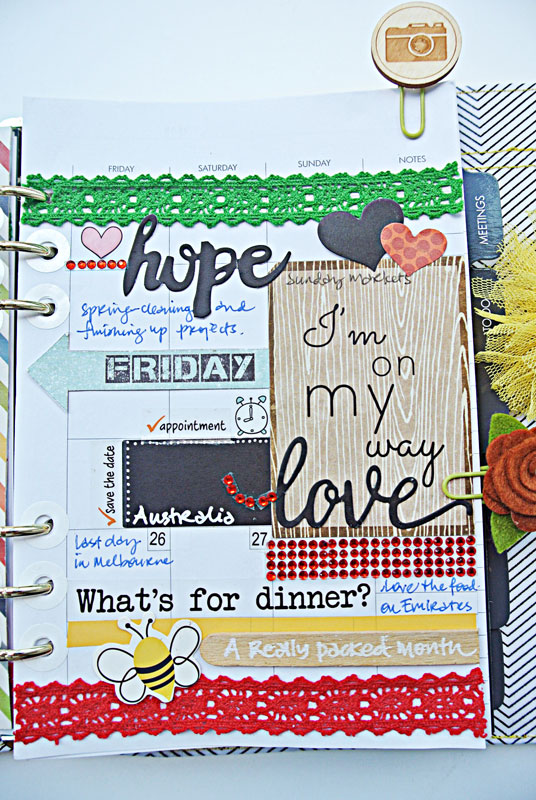 FRIDAY
SATURDAY
SUNDAY
NOTES
MEETINGS
hope
Sunday Markets
spring-cleaning and
finishing up projects.
I'm
on
my
way
love
TO DO
FRIDAY
appointment
save the date
Australia
last day
in Melbourne
26
27
What's for dinner?
love the food
on Emirates
A Really packed month